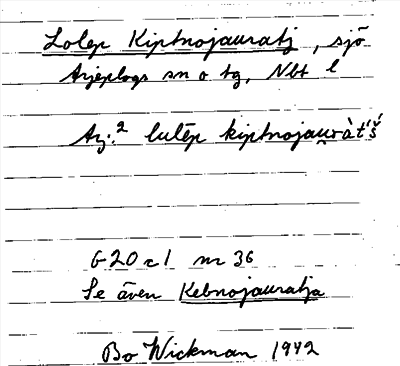 Lolep Kiptnojauratj, sjö
Arjeplogs sn o tg, Nbt l
Arj.² lulēp kiptnojau̯ràt́š́
G20c1 nr 36
Se även Kebnojauratja
Bo Wickman 1942